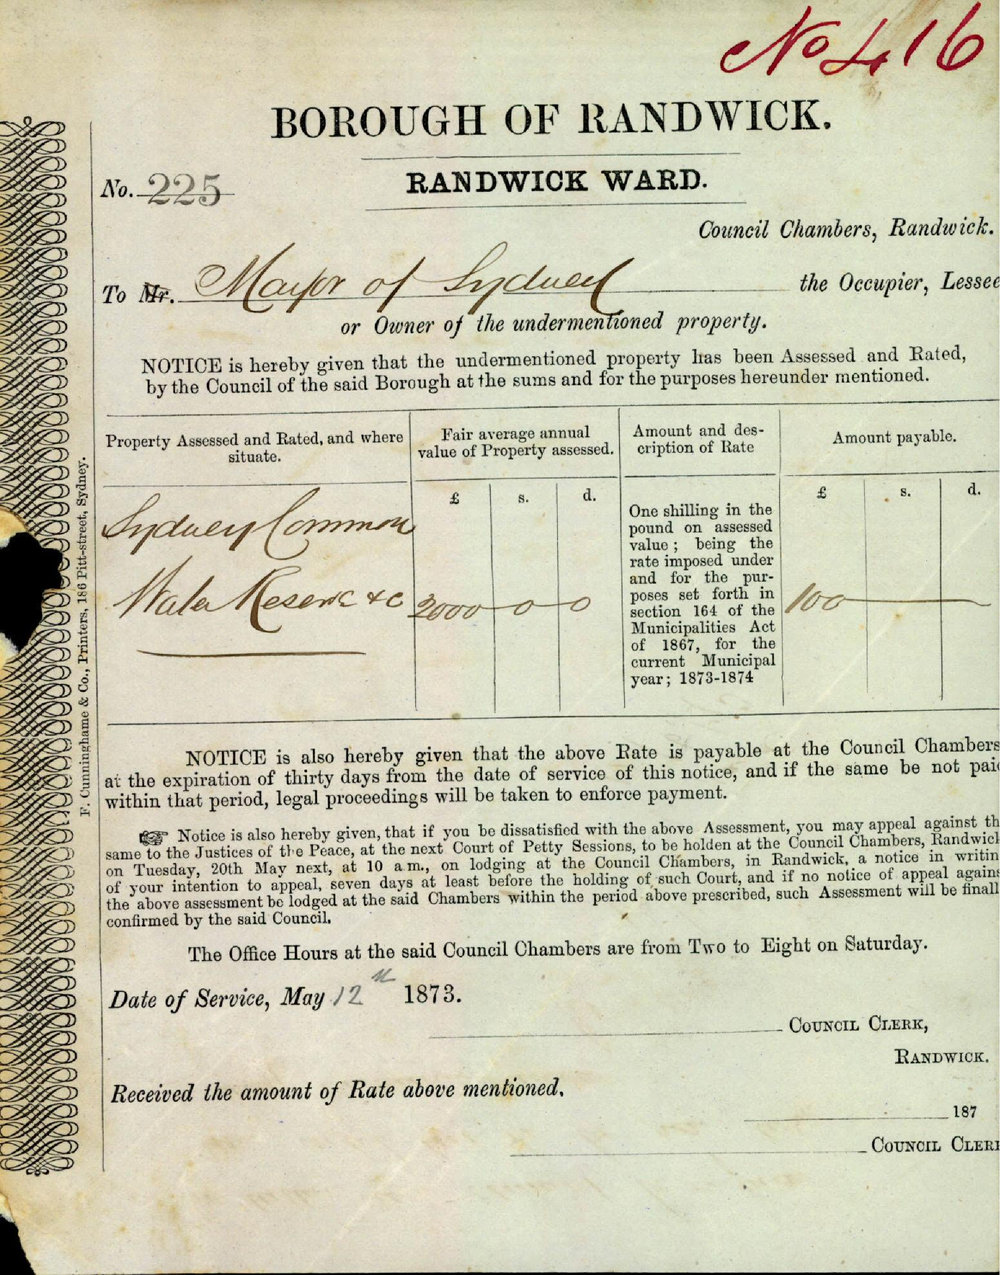 No 416
BOROUGH OF RANDWICK.
No. 225
RANDWICK WARD.
Council Chambers, Randwick.
To Mr. Mayor of Sydney the Occupier, Lessee
or Owner of the undermentioned property.
NOTICE is hereby given that the undermentioned property has been Assessed and Rated,
by the Council of the said Borough at the sums and for the purposes hereunder mentioned.
Property Assessed and Rated, and where
situate.
Fair average annual
value of Property assessed.
Amount and des-
cription of Rate
Amount payable.
£ s. d.
£ s. d.
Sydney Common
Water Reserve &c
2000 - 0 - 0
One shilling in the
pound on assessed
value; being the
rate imposed under
and for the pur-
poses set forth in
section 164 of the
Municipalities Act
of 1867, for the
current Municipal
year; 1873-1874
100
F. Cunninghame & Co., Printers, 186 Pitt-street, Sydney.
NOTICE is also hereby given that the above Rate is payable at the Council Chambers
at the expiration of thirty days from the date of service of this notice, and if the same be not paid
within that period, legal proceedings will be taken to enforce payment.
☞ Notice is also hereby given, that if you be dissatisfied with the above Assessment, you may appeal against th
same to the Justices of the Peace, at the next Court of Petty Sessions, to be holden at the Council Chambers, Randwick
on Tuesday, 20th May next, at 10 a.m., on lodging at the Council Chambers, in Randwick, a notice in writin
of your intention to appeal, seven days at least before the holding of such Court, and if no notice of appeal agains
the above assessment be lodged at the said Chambers within the period above prescribed, such Assessment will be finall
confirmed by the said Council.
The Office Hours at the said Council Chambers are from Two to Eight on Saturday.
Date of Service, May 12th 1873.
COUNCIL CLERK,
RANDWICK.
Received the amount of Rate above mentioned.
187
COUNCIL CLERK